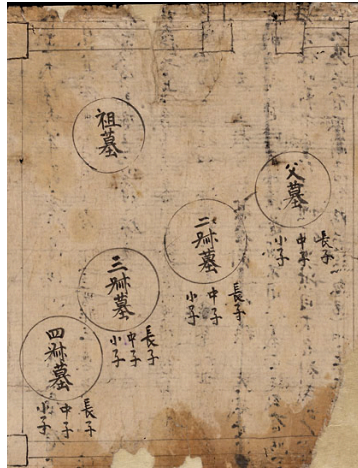 祖墓
父墓
長子
中子
小子
二叔墓
長子
中子
小子
三叔墓
長子
中子
小子
四叔墓
長子
中子
小子